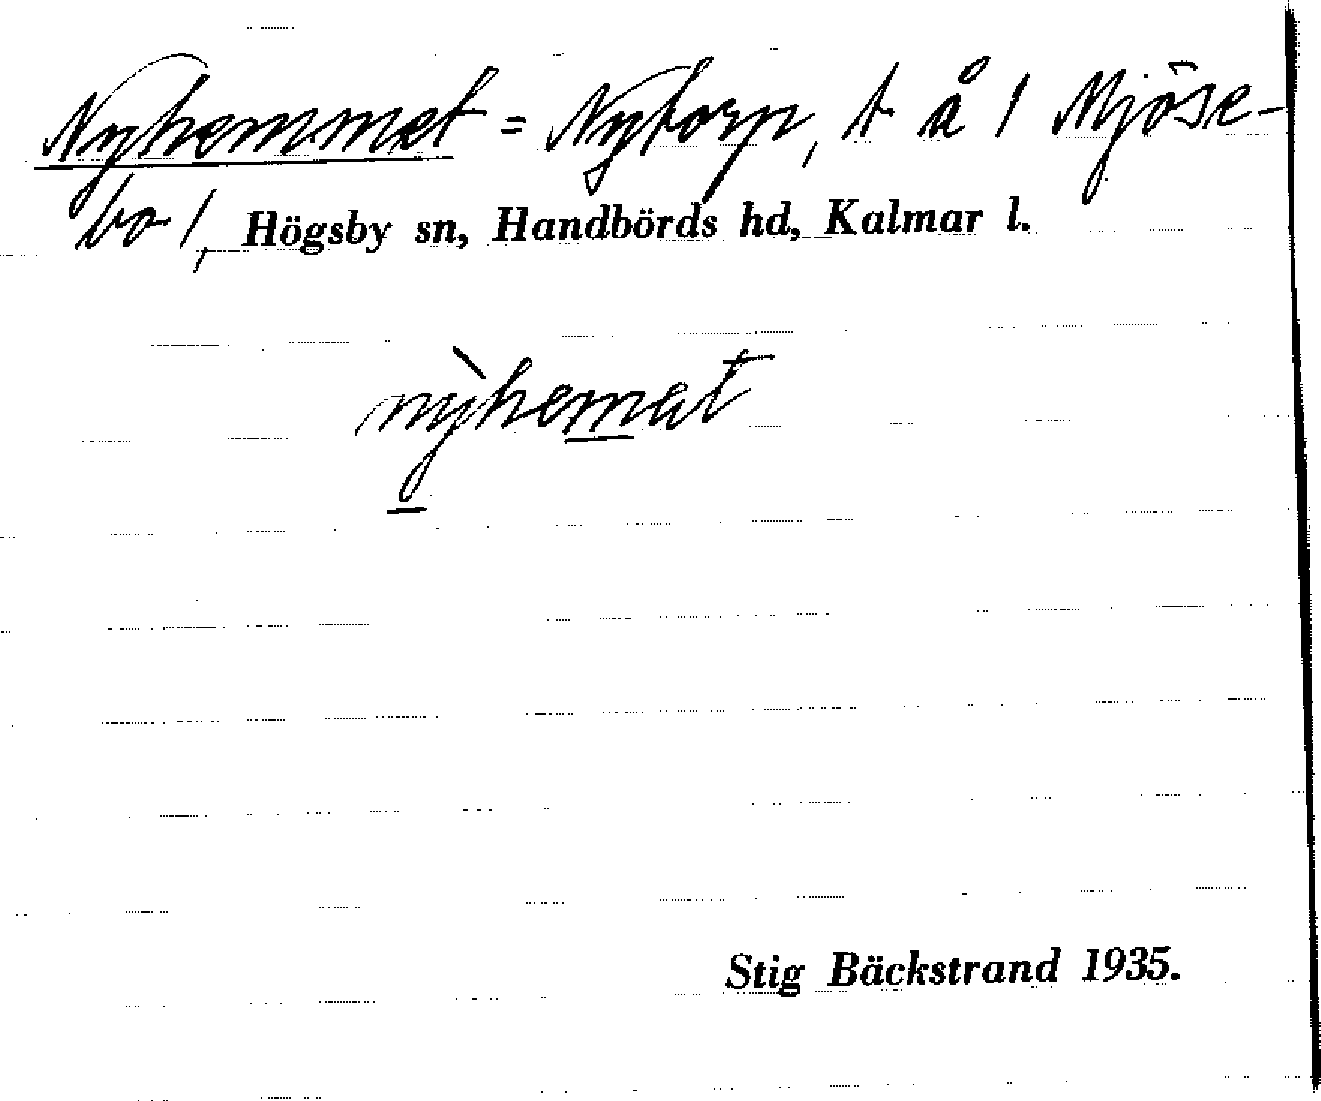 Nyhemmet = Nytorp, t å 1 Mjöse-
bo 1, Högsby sn, Handbörds hd, Kalmar l.
nỳhemat
Stig Bäckstrand 1935.